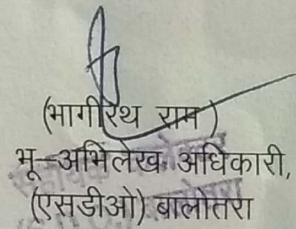 (भागीरथ राम)
भू-अभिलेख अधिकारी,
(एसडीओ) बालोतरा